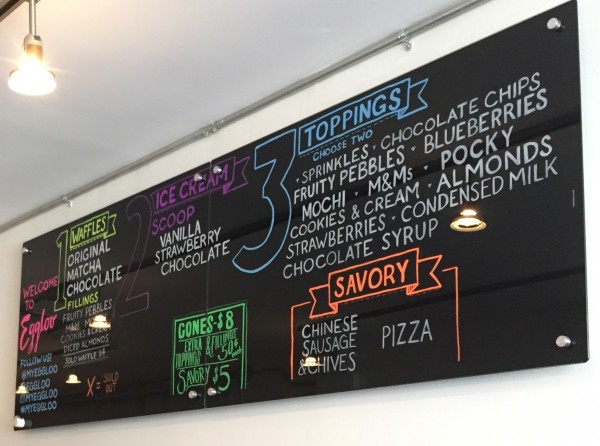 WELCOME
TO
Eggloo
FOLLOW US!
@MYEGGLOO
@MYEGGLOO
1
WAFFLES
ORIGINAL
MATCHA
CHOCOLATE
FILLINGS
FRUITY PEBBLES
COOKIES & CREAM
DICED ALMONDS
SOLO WAFFLE $4
X = SOLD
OUT
2
ICE CREAM
SCOOP
VANILLA
STRAWBERRY
CHOCOLATE
CONES-$8
EXTRA
TOPPINGS & FILLINGS
50¢ each
SAVORY $5
3
TOPPINGS
CHOOSE TWO
· SPRINKLES · CHOCOLATE CHIPS
FRUITY PEBBLES · BLUEBERRIES
MOCHI · M&Ms · POCKY
COOKIES & CREAM · ALMONDS
STRAWBERRIES · CONDENSED MILK
CHOCOLATE SYRUP
SAVORY
CHINESE
SAUSAGE
& CHIVES
PIZZA